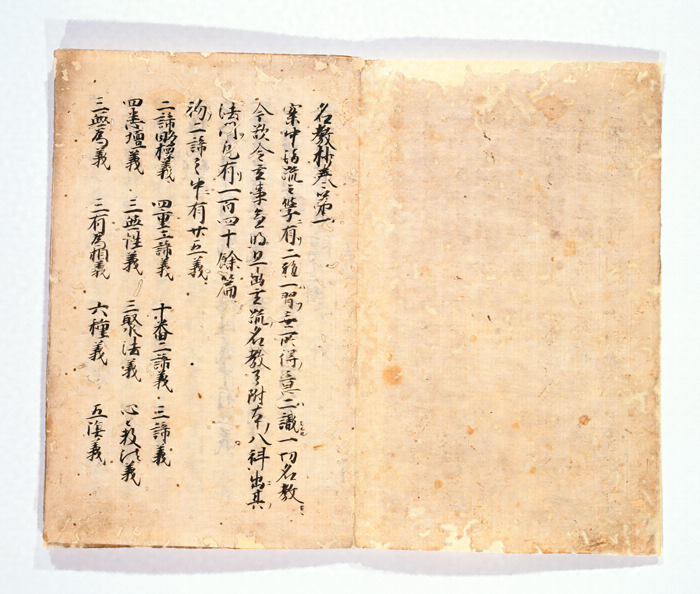 名教抄巻第一
案中江流之學有二種一習無所得意二識一切名教
今欲令玄來無的且出玄疏名教了附本八科出其
法門凡有一百四十餘篇
初二諦之中有廿五義
二諦略標義 四重二諦義 十番二諦義 三諦義
四悉壇義 三無性義 三聚法義 心數法義
三無為義 三有為相義 六種義 五陰義